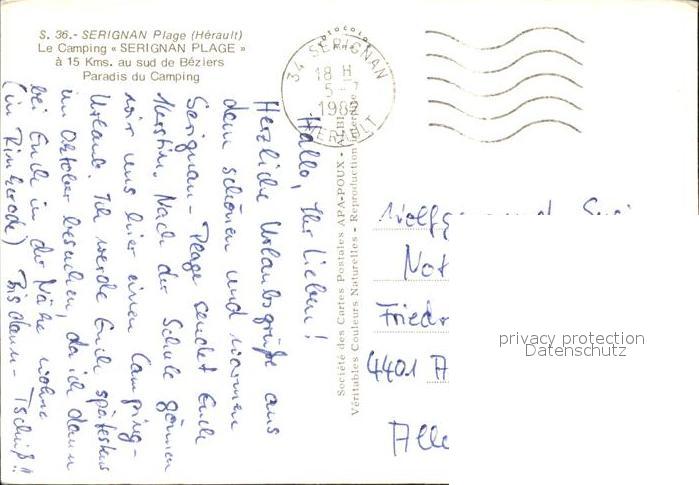 S. 36.- SERIGNAN Plage (Hérault)
Le Camping « SERIGNAN PLAGE »
à 15 Kms. au sud de Béziers
Paradis du Camping
34 SERIGNAN
18 H
5-7
1982
HERAULT
Hallo, Ihr Lieben!
Herzliche Urlaubsgrüße aus
dem schönen und warmen
Serignan-Plage sendet Euch
Kerstin. Nach der Schule gönnen
wir uns hier einen Camping-
Urlaub. Ich werde Euch spätestens
im Oktober besuchen, da ich dann
bei Euch in der Nähe wohne
(in Rinkerode) Bis dann - Tschüß!!
Société des Cartes Postales APA-POUX -
Véritables Couleurs Naturelles - Reproduction
Wolfg
Not
Friedr
4401 A
Alle
privacy protection
Datenschutz